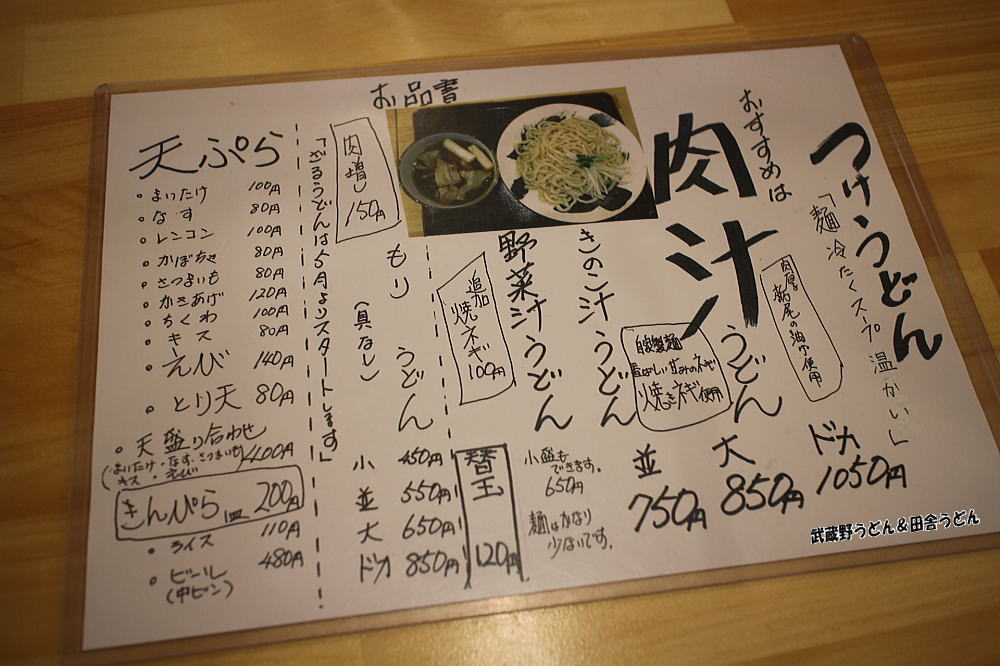 お品書
つけうどん
「麺冷たくスープ温かい」
おすすめは
肉汁うどん
肉厚
鮎尾の油で使用
自家製麺
香ばしい甘みのネギ
焼きネギ使用
きのこ汁うどん
野菜汁うどん
並 750円
大 850円
ドカ 1050円
小盛も
できます。
650円
麺はかなり
少ないです。
追加
焼ネギ
100円
替玉
120円
肉増し
150円
もりうどん
(具なし)
小 450円
並 550円
大 650円
ドカ 850円
「ざるうどんは5月よりスタートします」
天ぷら
・まいたけ 100円
・なす 80円
・レンコン 100円
・かぼちゃ 80円
・さつまいも 80円
・かきあげ 120円
・ちくわ 100円
・キス 80円
・えび 140円
・とり天 80円
・天盛り合わせ 400円
(まいたけ・なす・さつまいも
キス・えび)
きんぴら一皿 200円
・ライス 110円
・ビール 480円
(中ビン)
武蔵野うどん&田舎うどん